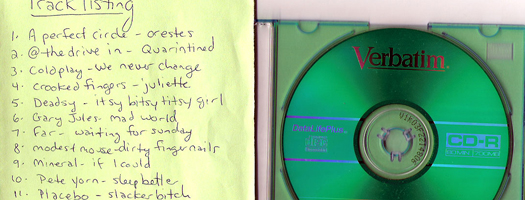 Track listing
1. A perfect circle - orestes
2. @ the drive in - Quarintined
3. Coldplay - We never change
4. crooked fingers - juliette
5. Deadsy - itsy bitsy titsy girl
6. Gary Jules - mad world
7. Far - waiting for sunday
8. modest mouse - dirty fingernails
9. Mineral - if I could
10. Pete yorn - sleep better
11. Placebo - slackerbitch
Verbatim
CD-R